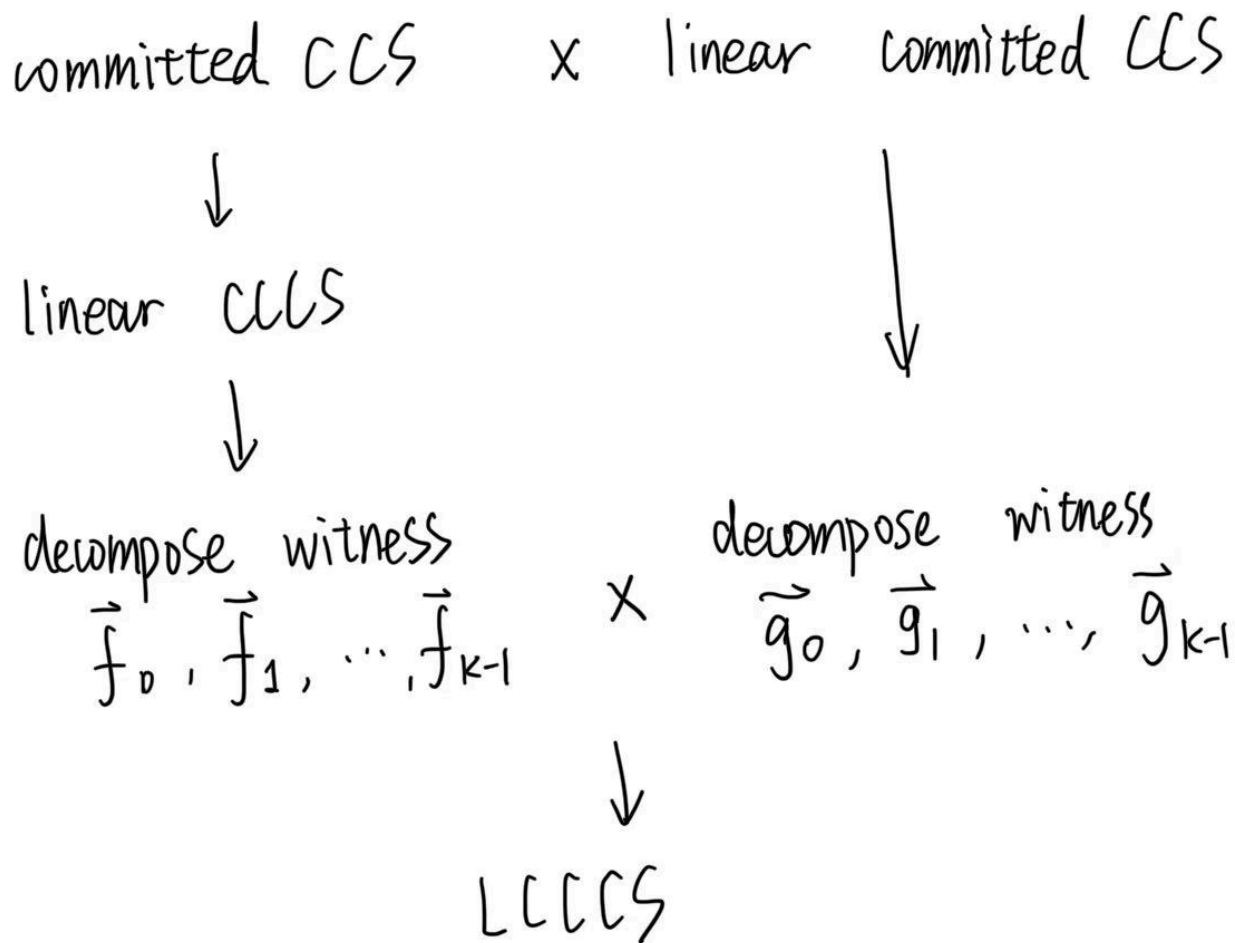 committed CCS × linear committed CCS
↓ ↓
linear CCCS
↓
decompose witness decompose witness
f⃗₀, f⃗₁, ..., f⃗ₖ₋₁ × g⃗₀, g⃗₁, ..., g⃗ₖ₋₁
↓
LCCCS